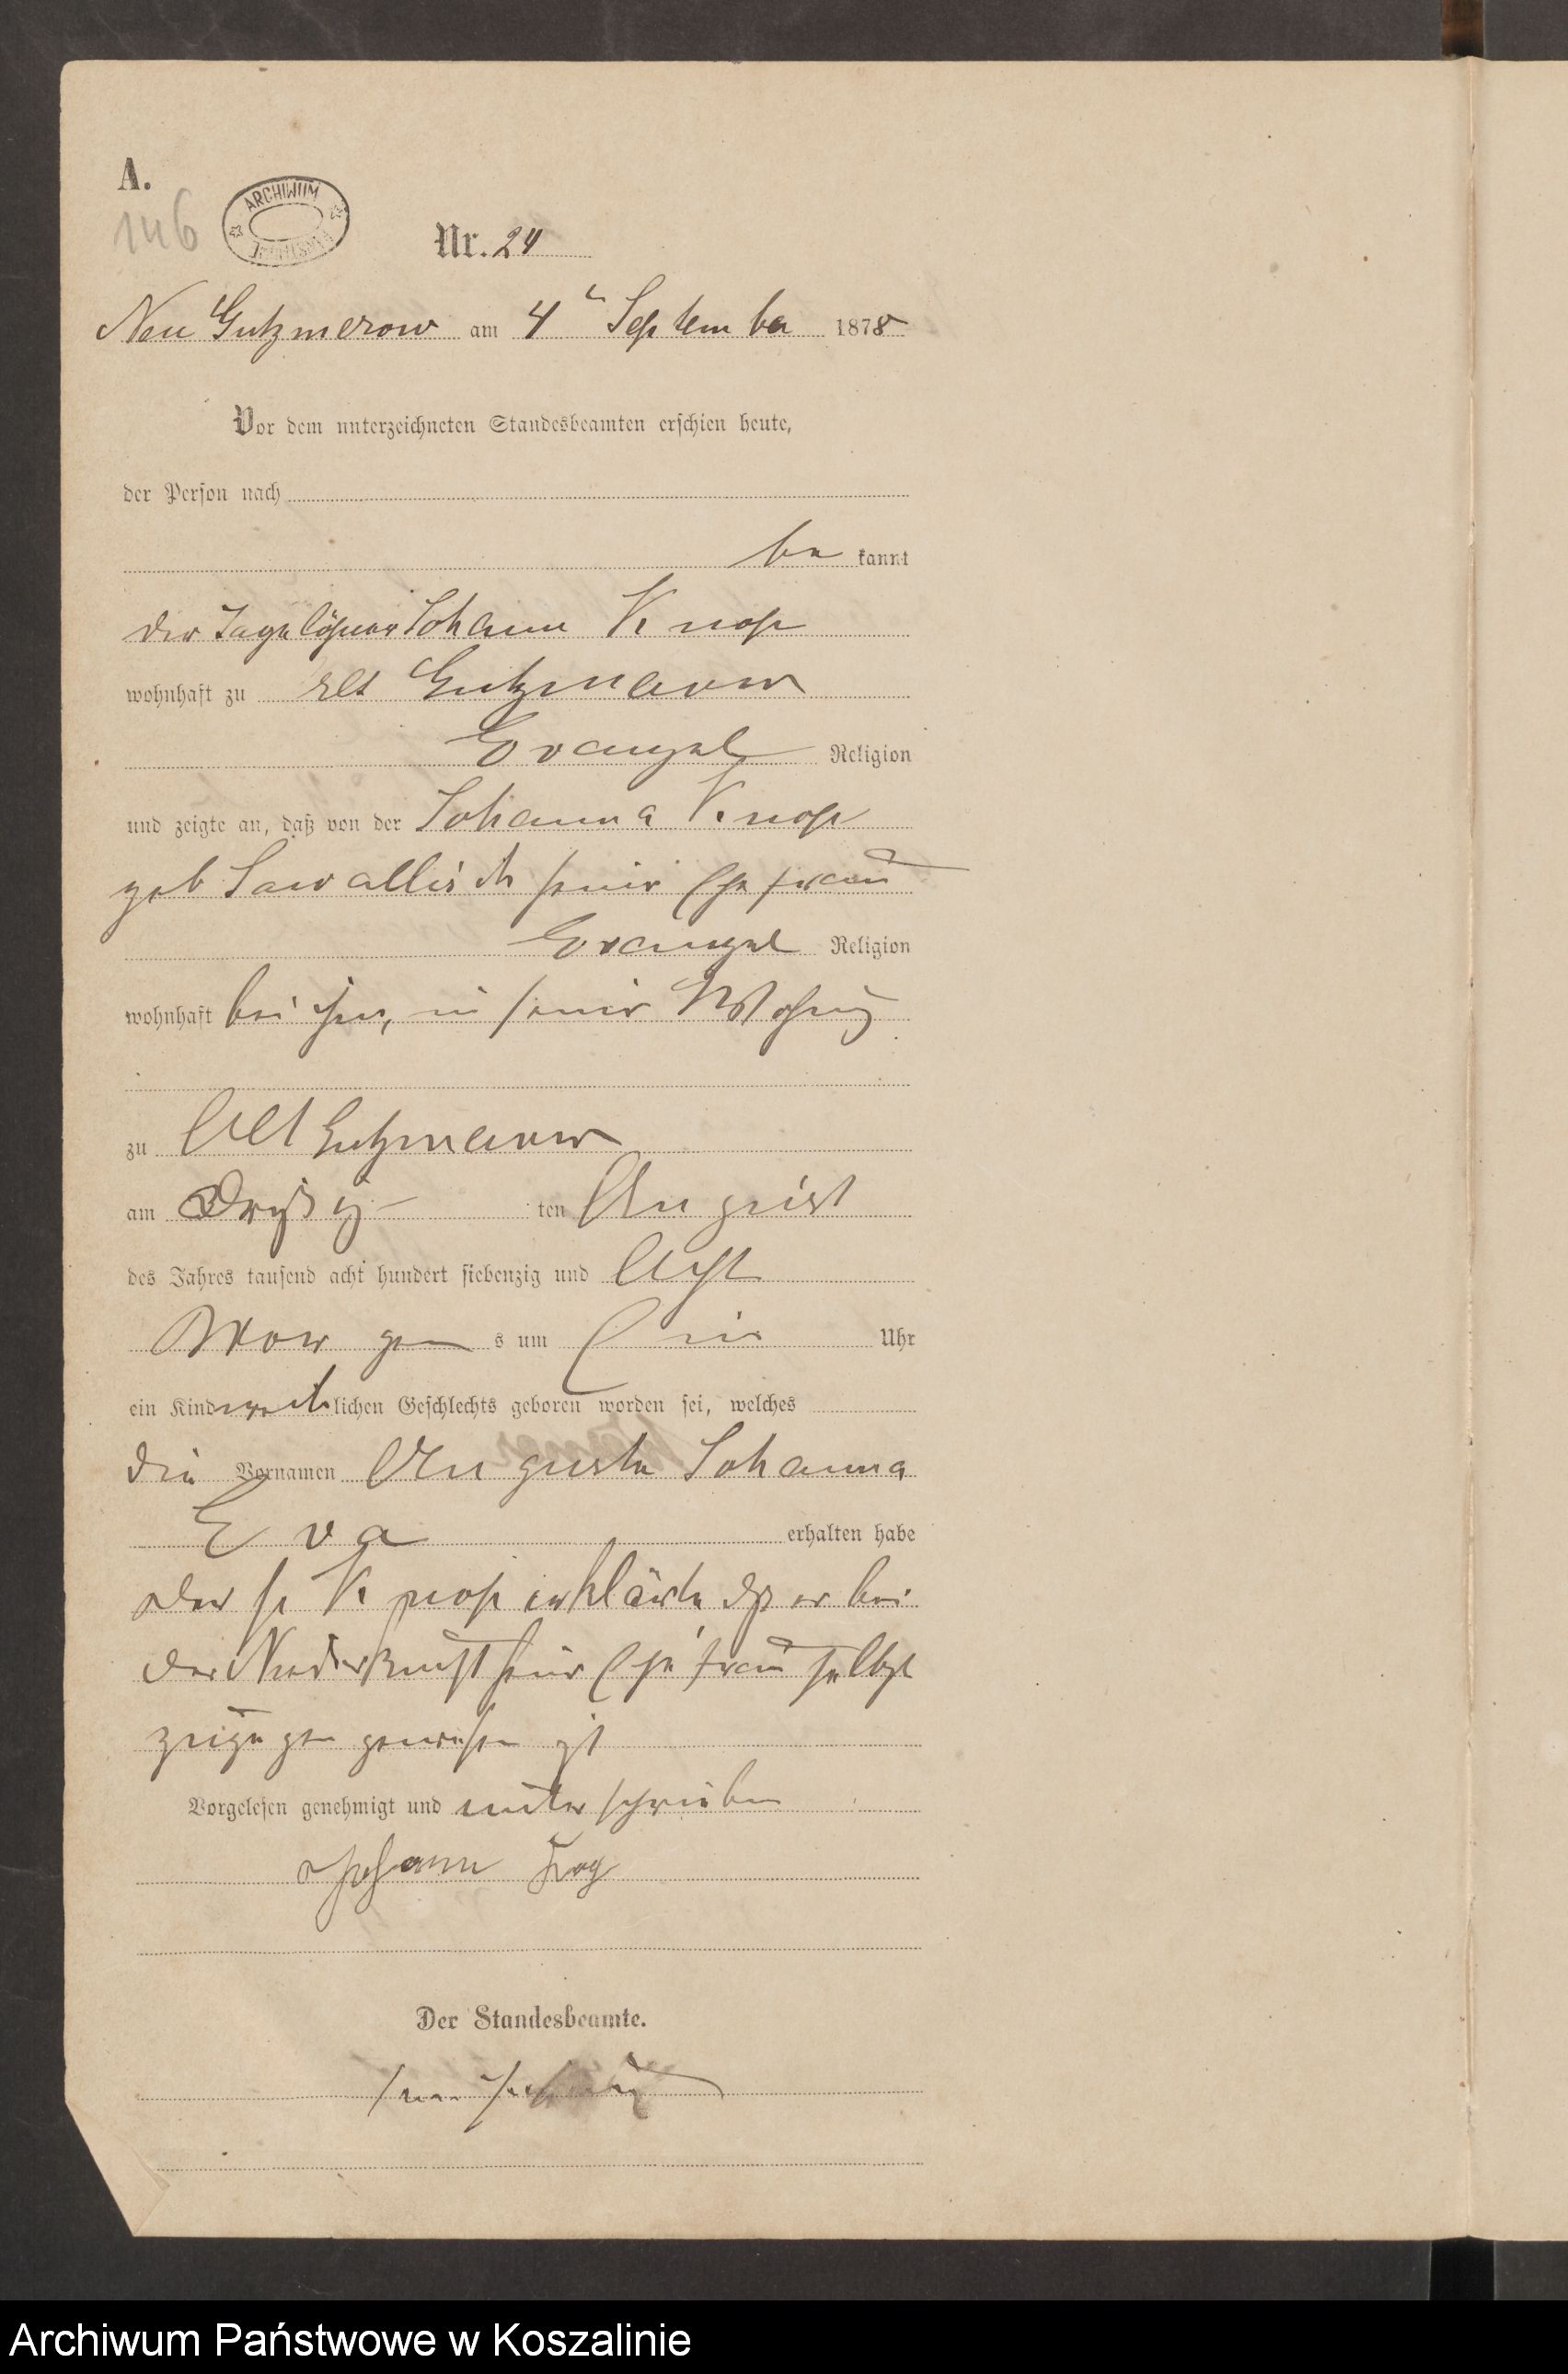 A.
146
ARCHIWUM
Nr. 24
Neu Gutzmerow am 4t September 1878
Vor dem unterzeichneten Standesbeamten erschien heute,
der Person nach
be kannt
der Tagelöhner Johann Knop
wohnhaft zu Alt Gutzmerow
Evangel Religion
und zeigte an, daß von der Johanna Knop
geb Sawallisch seiner Ehefrau
Evangel Religion
wohnhaft bei ihm, in seiner Wohnung
zu Alt Gutzmerow
am Dreißig ten August
des Jahres tausend acht hundert siebenzig und Acht
Morgen s um Ein Uhr
ein Kind weiblichen Geschlechts geboren worden sei, welches
die Vornamen Auguste Johanna
Eva erhalten habe
der p Knop erklärte daß er bei
der Niederkunft seiner Ehefrau selbst
zugegen gewesen ist
Vorgelesen genehmigt und unterschrieben
Johann
Der Standesbeamte.
Archiwum Państwowe w Koszalinie